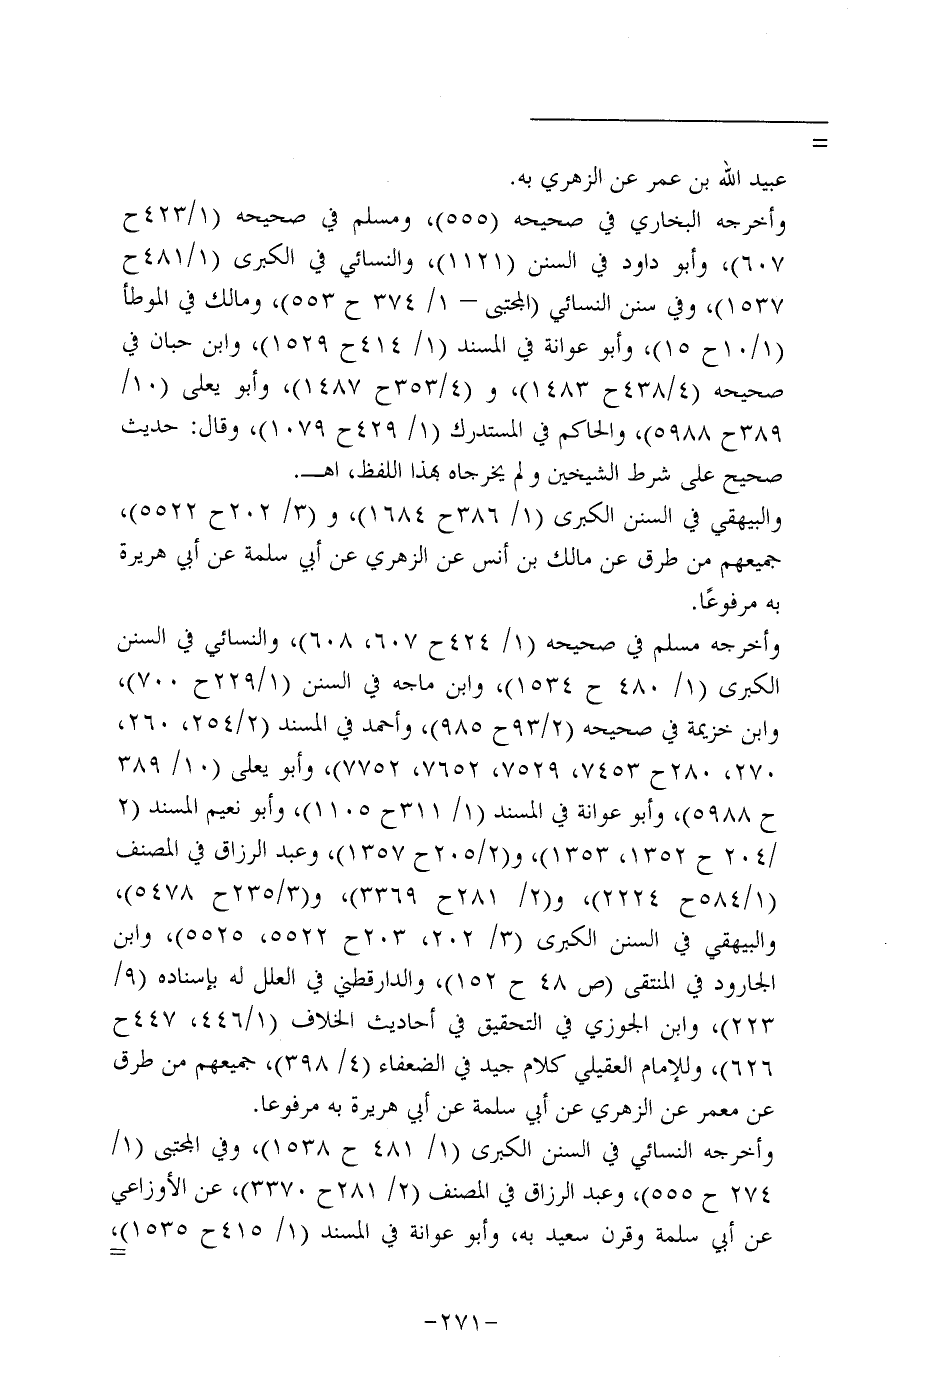 =
عبيد الله بن عمر عن الزهري به.
وأخرجه البخاري في صحيحه (٥٥٥)، ومسلم في صحيحه (٤٢٣/١ح
٦٠٧)، وأبو داود في السنن (١١٢١)، والنسائي في الكبرى (٤٨١/١ح
١٥٣٧)، وفي سنن النسائي (المجتبى – ١/ ٣٧٤ ح ٥٥٣)، ومالك في الموطأ
(١٠/١ح ١٥)، وأبو عوانة في المسند (١/ ٤١٤ح ١٥٢٩)، وابن حبان في
صحيحه (٤٣٨/٤ح ١٤٨٣)، و (٣٥٣/٤ح ١٤٨٧)، وأبو يعلى (١٠/
٣٨٩ح ٥٩٨٨)، والحاكم في المستدرك (١/ ٤٢٩ح ١٠٧٩)، وقال: حديث
صحيح على شرط الشيخين و لم يخرجاه بهذا اللفظ، اهـ.
والبيهقي في السنن الكبرى (١/ ٣٨٦ح ١٦٨٤)، و (٣/ ٢٠٢ح ٥٥٢٢)،
جميعهم من طرق عن مالك بن أنس عن الزهري عن أبي سلمة عن أبي هريرة
به مرفوعًا.
وأخرجه مسلم في صحيحه (١/ ٤٢٤ح ٦٠٧، ٦٠٨)، والنسائي في السنن
الكبرى (١/ ٤٨٠ ح ١٥٣٤)، وابن ماجه في السنن (٢٢٩/١ح ٧٠٠)،
وابن خزيمة في صحيحه (٩٣/٢ح ٩٨٥)، وأحمد في المسند (٢٥٤/٢، ٢٦٠،
٢٧٠، ٢٨٠ح ٧٤٥٣، ٧٥٢٩، ٧٦٥٢، ٧٧٥٢)، وأبو يعلى (١٠/ ٣٨٩
ح ٥٩٨٨)، وأبو عوانة في المسند (١/ ٣١١ح ١١٠٥)، وأبو نعيم المسند (٢
/٢٠٤ ح ١٣٥٢، ١٣٥٣)، و(٢٠٥/٢ح ١٣٥٧)، وعبد الرزاق في المصنف
(٥٨٤/١ح ٢٢٢٤)، و(٢/ ٢٨١ح ٣٣٦٩)، و(٢٣٥/٣ح ٥٤٧٨)،
والبيهقي في السنن الكبرى (٣/ ٢٠٢، ٢٠٣ح ٥٥٢٢، ٥٥٢٥)، وابن
الجارود في المنتقى (ص ٤٨ ح ١٥٢)، والدارقطني في العلل له بإسناده (٩/
٢٢٣)، وابن الجوزي في التحقيق في أحاديث الخلاف (٤٤٦/١، ٤٤٧ح
٦٢٦)، وللإمام العقيلي كلام جيد في الضعفاء (٤/ ٣٩٨)، جميعهم من طرق
عن معمر عن الزهري عن أبي سلمة عن أبي هريرة به مرفوعا.
وأخرجه النسائي في السنن الكبرى (١/ ٤٨١ ح ١٥٣٨)، وفي المجتبى (١/
٢٧٤ ح ٥٥٥)، وعبد الرزاق في المصنف (٢/ ٢٨١ح ٣٣٧٠)، عن الأوزاعي
عن أبي سلمة وقرن سعيد به، وأبو عوانة في المسند (١/ ٤١٥ح ١٥٣٥)،
=
-٢٧١-